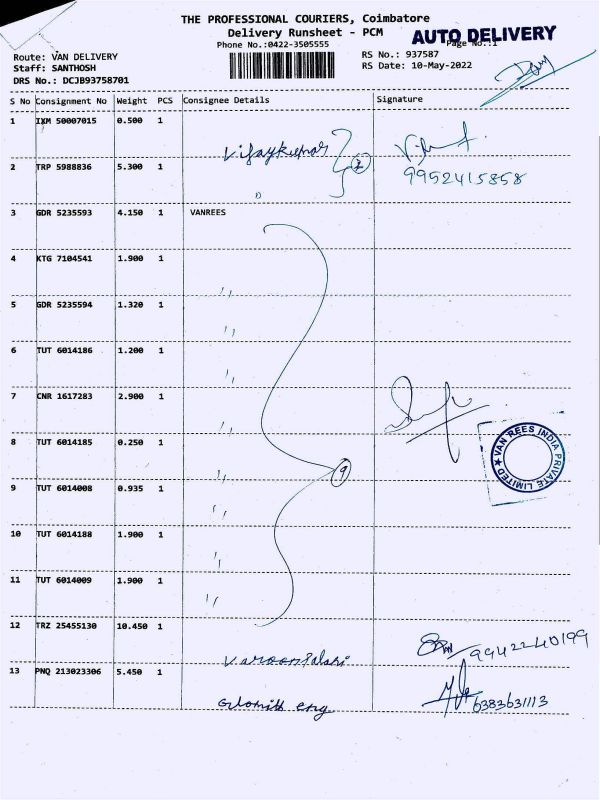 THE PROFESSIONAL COURIERS, Coimbatore
Delivery Runsheet - PCM
AUTO DELIVERY
Phone No.:0422-3505555
Page No.:1
Route: VAN DELIVERY
RS No.: 937587
Staff: SANTHOSH
RS Date: 10-May-2022
DRS No.: DCJB93758701
S No Consignment No Weight PCS Consignee Details Signature
1 IXM 50007015 0.500 1
Vijaykumar 2
2 TRP 5988836 5.300 1
9952415858
3 GDR 5235593 4.150 1 VANREES
4 KTG 7104541 1.900 1
"
5 GDR 5235594 1.320 1
"
6 TUT 6014186 1.200 1
"
7 CNR 1617283 2.900 1
"
8 TUT 6014185 0.250 1
VAN REES INDIA PRIVATE LIMITED
9
"
9 TUT 6014008 0.935 1
"
10 TUT 6014188 1.900 1
"
11 TUT 6014009 1.900 1
"
12 TRZ 25455130 10.450 1
9942240199
13 PNQ 213023306 5.450 1
6383631113